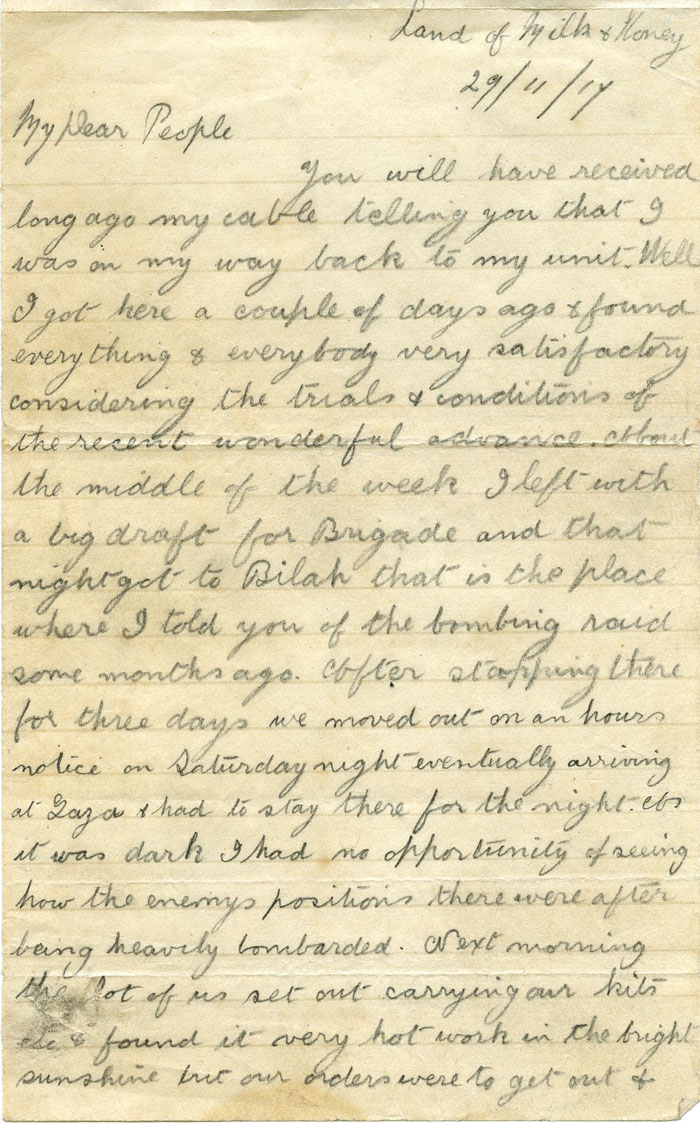 Land of Milk & Honey
29/11/17
My Dear People
You will have received
long ago my cable telling you that I
was on my way back to my unit. Well
I got here a couple of days ago & found
everything & everybody very satisfactory
considering the trials & conditions of
the recent wonderful advance. About
the middle of the week I left with
a big draft for Brigade and that
night got to Bilah that is the place
where I told you of the bombing raid
some months ago. After stopping there
for three days we moved out on an hours
notice on Saturday night eventually arriving
at Gaza & had to stay there for the night. As
it was dark I had no opportunity of seeing
how the enemys positions there were after
being heavily bombarded. Next morning
the lot of us set out carrying our kits
etc & found it very hot work in the bright
sunshine but our orders were to get out &